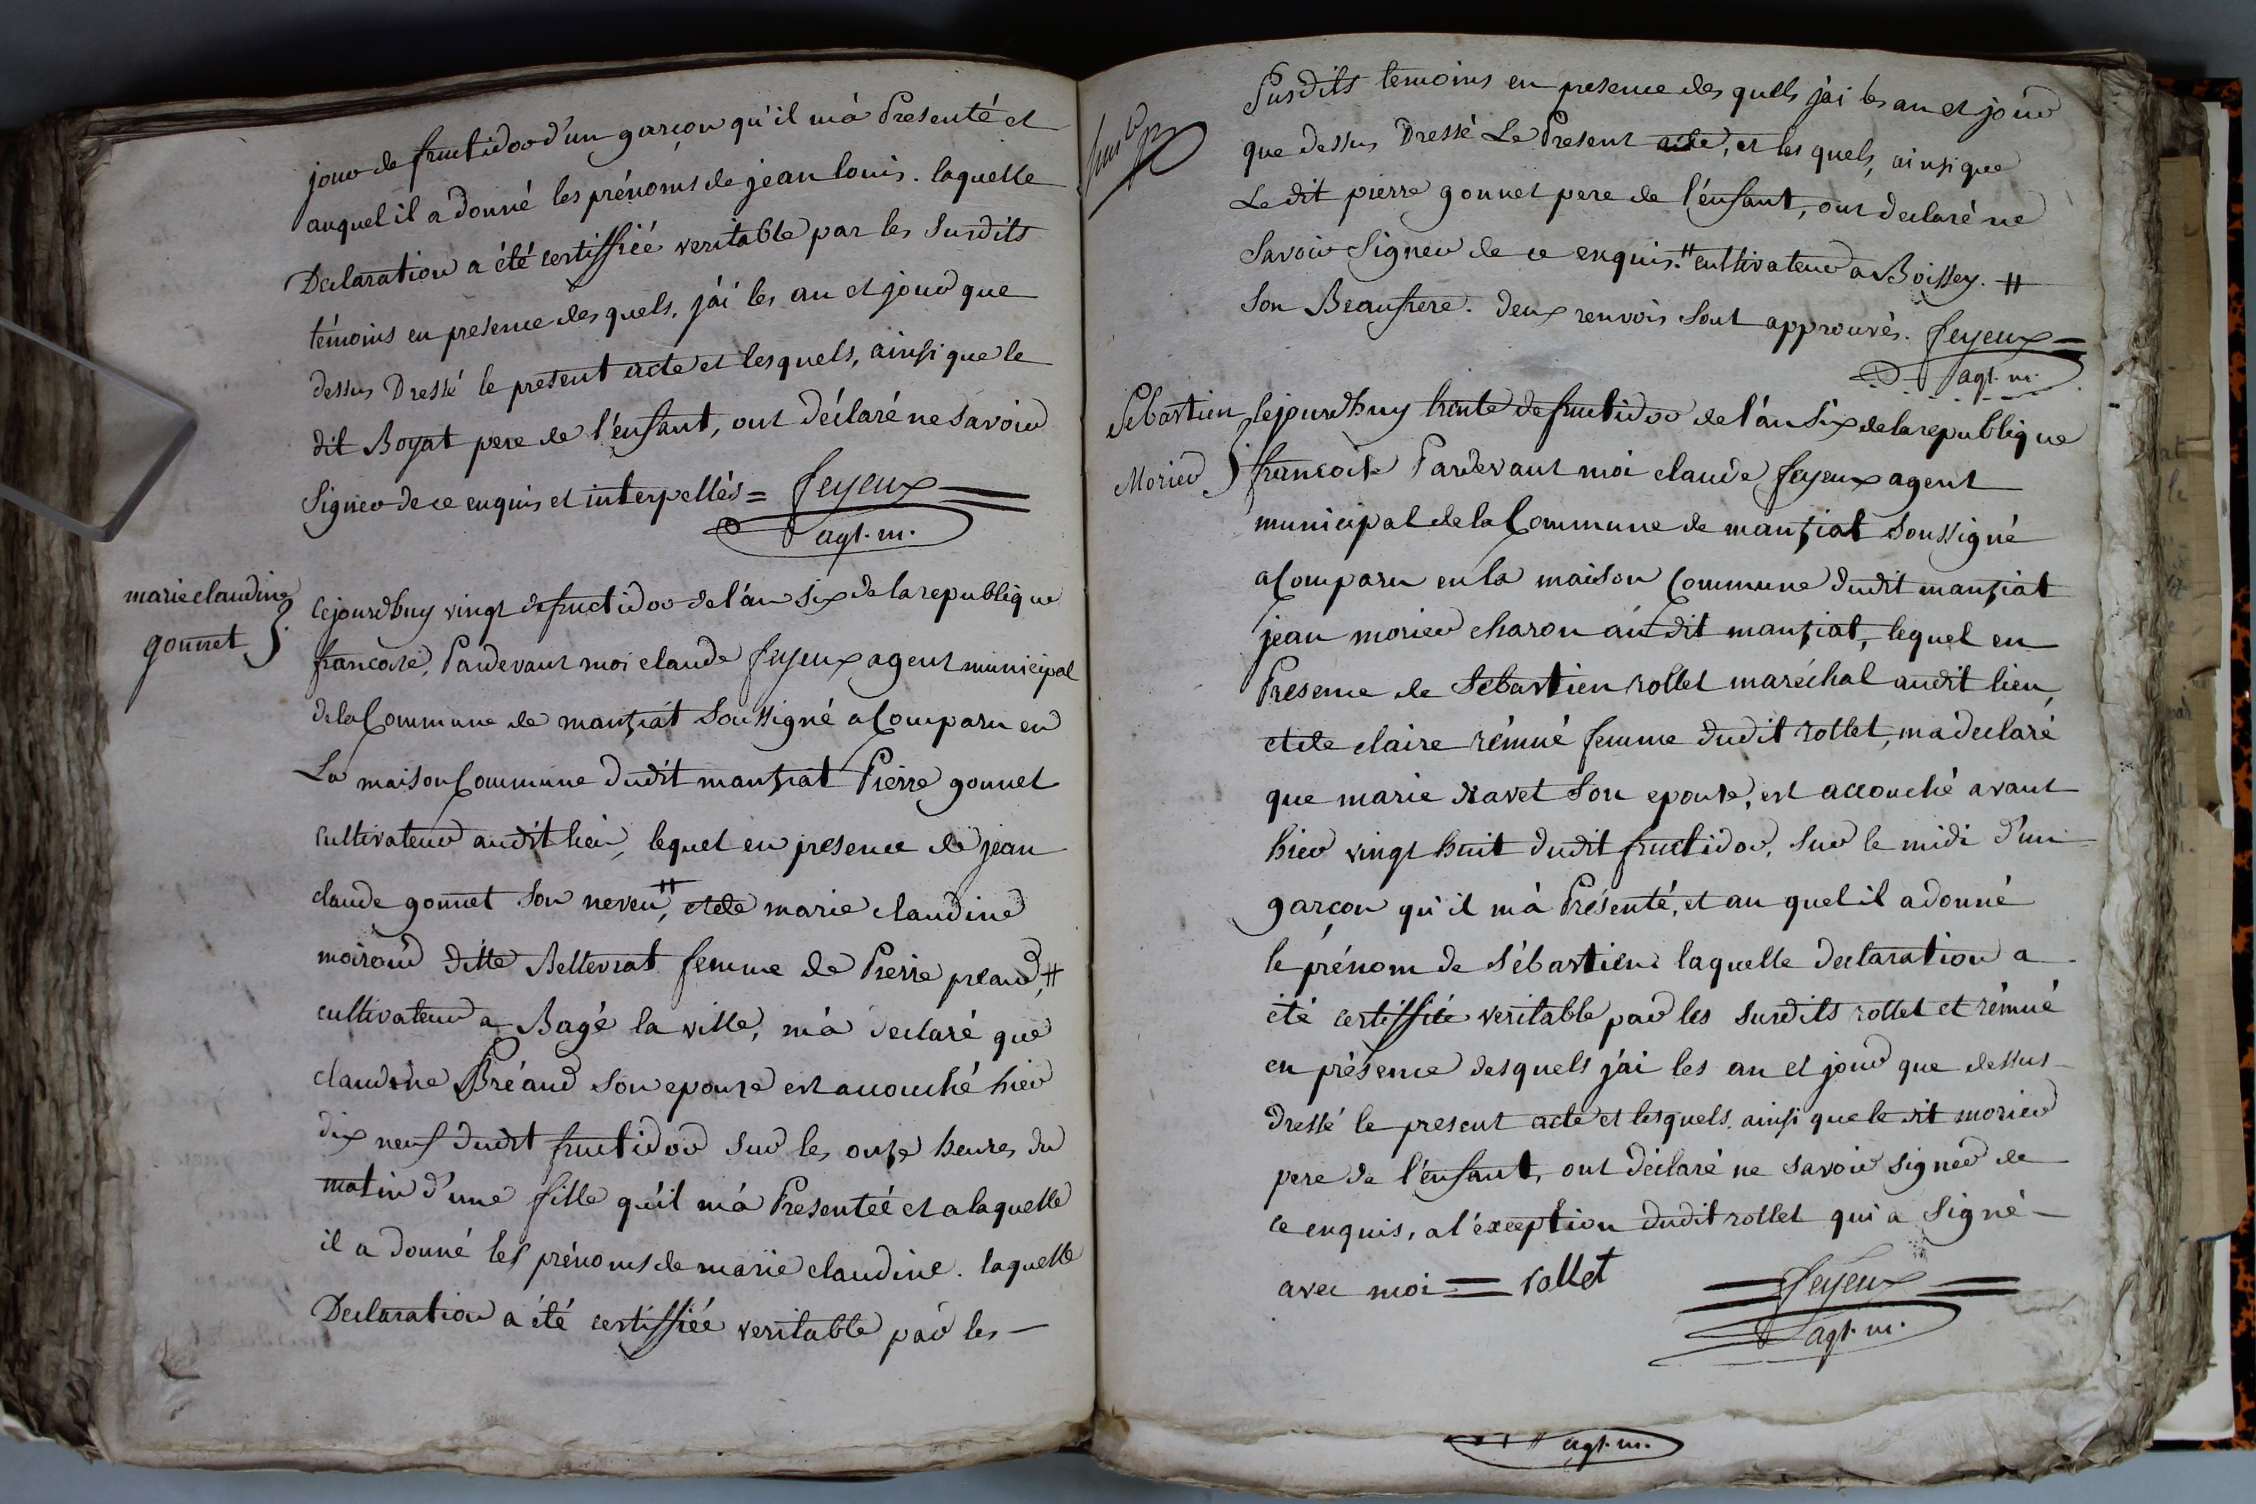 jour de fructidor d'un garçon qu'il m'à Presenté et
auquel il a donné les prénoms de jean louis. laquelle
Declaration a été certiffiéé veritable par les Susdits
témoins en presence des quels, j'ai les an et jour que
dessus Dressé le present acte et lesquels, ainsi que le
dit Boyat pere de l'énfant, ont déclaré ne savoir
Signer de ce enquis et interpellés = feyeux
agt. m.
marie claudine
gonnet
Cejourdhuy vingt de fructidor de l'àn six de la republique
francoise, Pardevant moi claude feyeux agent municipal
de la Commune de mantziat Soussigné a Comparu en
La maison Commune dudit mantziat Pierre gonnet
cultivateur audit lieu, lequel en presence de jean
claude gonnet son neveu,# et de marie claudine
moiroud ditte Bellevrat femme de Pierre preaud,#
cultivateur a Bagé la ville, m'à declaré que
claudine Préaud son epouse est acouché hier
dix neuf dudit fructidor sur les onze heures du
matin d'une fille qu'il m'à Presentéé et a laquelle
il a donné les prénoms de marie claudine. laquelle
Declaration a été certiffiéé veritable par les
Susdits temoins en presence des quels j'ai les an et jour
que dessus Dressé Le Present acte, et les quels, ainsi que
Le dit pierre gonnet pere de l'énfant, ont declaré ne
Savoir Signer de ce enquis. # cultivateur a Boissey. #
Son Beaufrere. Deux renvois sont approuvés. feyeux
agt. m.
Sébastien
Morier
Cejourdhuy trente de fructidor de l'àn six de la republique
francoise Pardevant moi claude feyeux agent
municipal de la Commune de mantziat Soussigné
a Comparu en la maison Commune dudit mantziat
jean morier charon audit mantziat, lequel en
Presence de Sébastien rollet maréchal audit lieu,
et de claire rémué femme dudit rollet, m'a declaré
que marie ravet Son epouse, est accouché avant
hier vingt huit dudit fructidor, sur le midi d'un
garçon qu'il m'à Présenté, et au quel il a donné
le prénom de sébastien laquelle declaration a
été certiffiéé veritable par les susdits rollet et rémué
en présence desquels j'ai les an et jour que dessus
Dressé le present acte et lesquels, ainsi que le dit morier
pere de l'énfant, ont déclaré ne savoir signer de
ce enquis, a l'éxception dudit rollet qui a Signé
avec moi = rollet feyeux
agt. m.
agt. m.